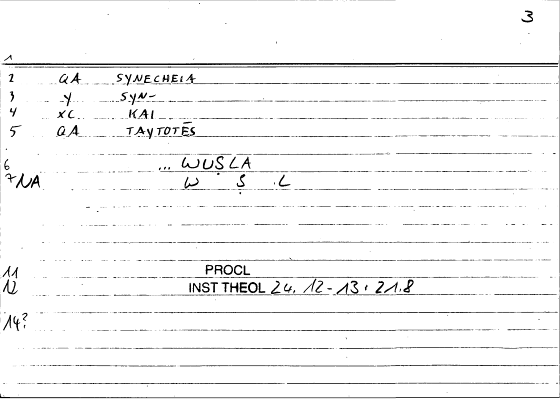 3
1
2 QA SYNECHEIA
3 Y SYN-
4 XC KAI
5 QA TAYTOTĒS
6 ... WUṢLA
7 NA W Ṣ L
11 PROCL
12 INST THEOL 24, 12-13; 21.8
14?